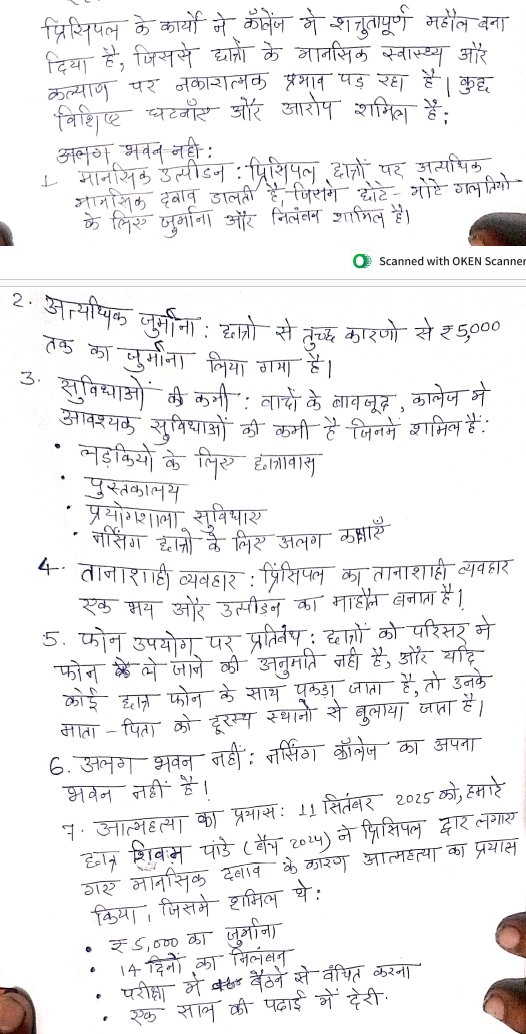 प्रिंसिपल के कार्यों ने कॉलेज में शत्रुतापूर्ण महौल बना
दिया है, जिससे छात्रों के मानसिक स्वास्थ्य और
कल्याण पर नकारात्मक प्रभाव पड़ रहा है। कुछ
विशिष्ट घटनाएँ और आरोप शामिल हैं:
अलग भवन नहीं:
1 मानसिक उत्पीडन : प्रिंसिपल छात्रों पर अत्यधिक
मानसिक दबाव डालती है, जिसमे छोटे-मोटे गलतियो
के लिए जुर्माना और निलंबन शामिल है।
Scanned with OKEN Scanner
2. अत्यधिक जुर्माना : छात्रो से तुच्छ कारणो से ₹5,000
तक का जुर्माना लिया गया है।
3. सुविधाओं की कमी : वादों के बावजूद, कालेज मे
आवश्यक सुविधाओं की कमी है जिनमें शामिल हैं:
• लड़कियो के लिए छात्रावास
• पुस्तकालय
• प्रयोगशाला सुविधाए
• नर्सिंग छात्रों के लिए अलग कक्षाएँ
4. तानाशाही व्यवहार : प्रिंसिपल का तानाशाही व्यवहार
एक भय और उत्पीडन का माहौल बनाता है।
5. फोन उपयोग पर प्रतिबंध : छात्रों को परिसर मे
फोन ले जाने की अनुमति नही है, और यदि
कोई छात्र फोन के साथ पकड़ा जाता है, तो उनके
माता-पिता को दूरस्थ स्थानो से बुलाया जाता है।
6. अलग भवन नहीं : नर्सिंग कॉलेज का अपना
भवन नहीं है।
7. आत्महत्या का प्रयास: 11 सितंबर 2025 को, हमारे
छात्र शिवम पांडे (बैच 2024) ने प्रिंसिपल द्वार लगाए
गए मानसिक दबाव के कारण आत्महत्या का प्रयास
किया, जिसमे शामिल थे:
• ₹5,000 का जुर्माना
• 14 दिनों का निलंबन
• परीक्षा में बैठने से वंचित करना
• एक साल की पढाई में देरी.